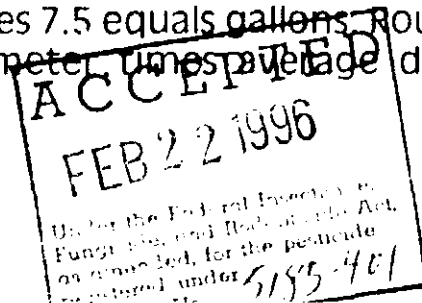 es 7.5 equals gallons. Rou
meter times average d
ACCEPTED
FEB 22 1996
Under the Federal Insecticide,
Fungicide, and Rodenticide Act,
as amended, for the pesticide
registered under 5185-401